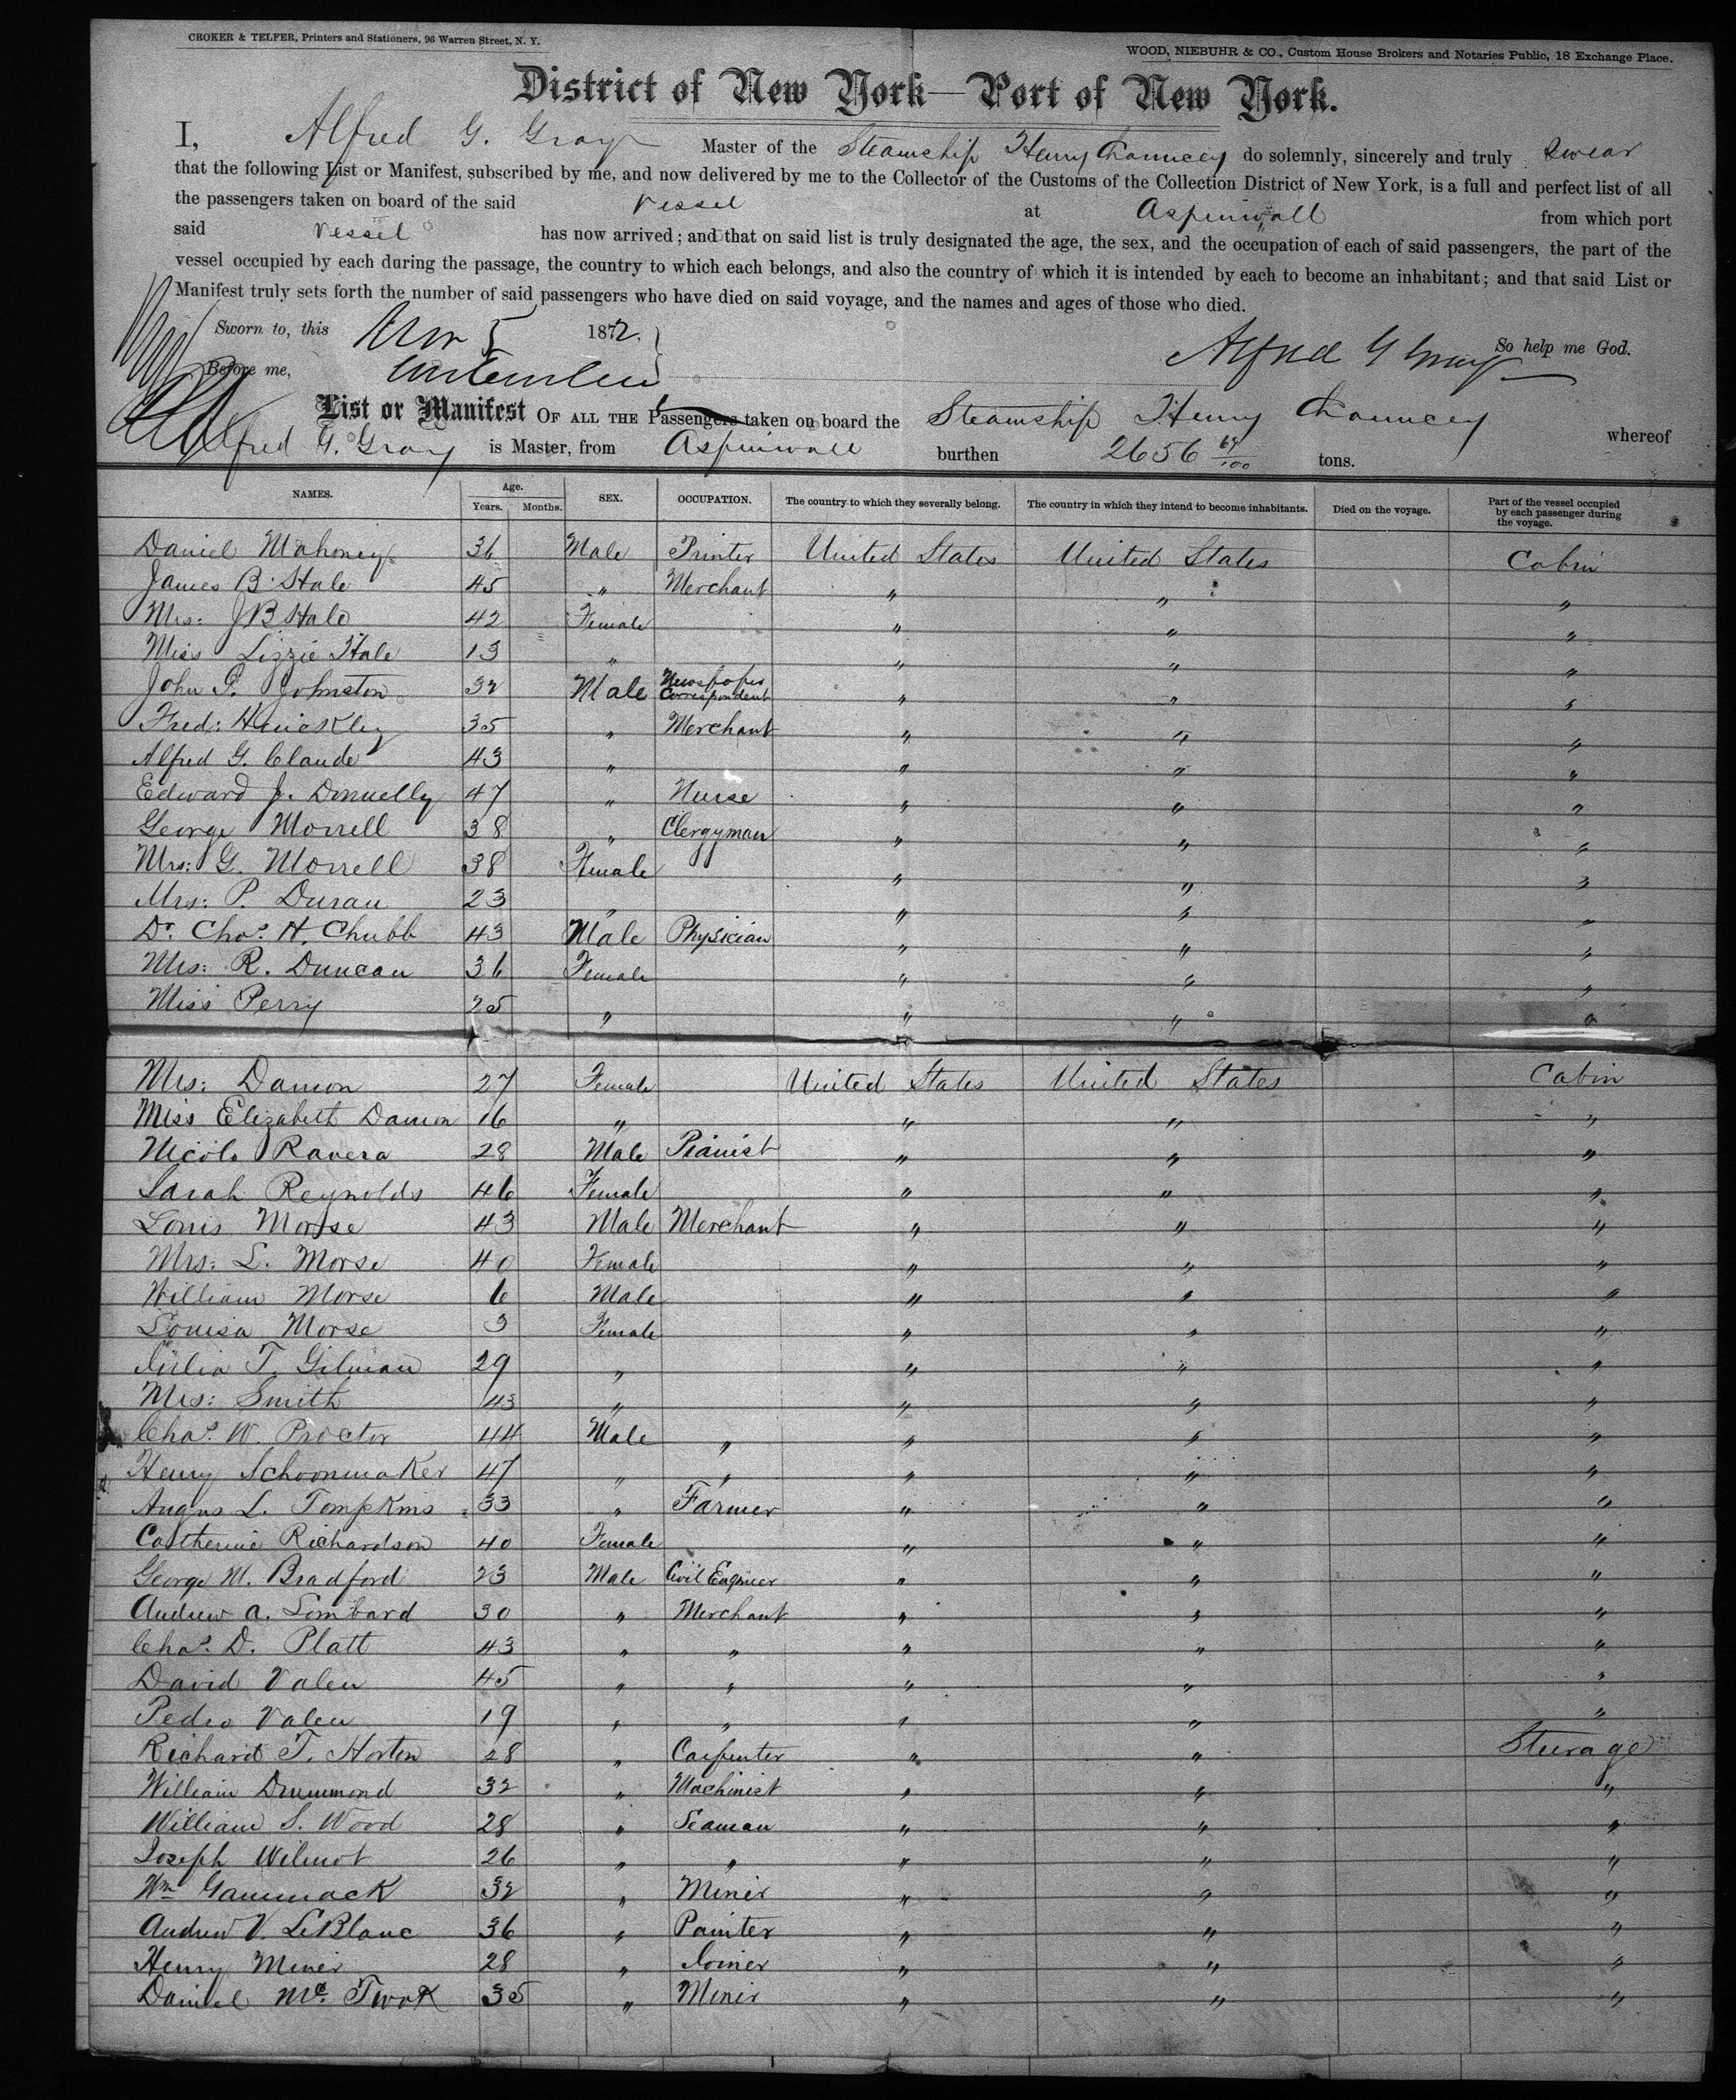 CROKER & TELFER, Printers and Stationers, 96 Warren Street, N. Y.
WOOD, NIEBUHR & CO., Custom House Brokers and Notaries Public, 18 Exchange Place.
District of New York—Port of New York.
I, Alfred G. Gray Master of the Steamship Henry Chauncey do solemnly, sincerely and truly swear
that the following List or Manifest, subscribed by me, and now delivered by me to the Collector of the Customs of the Collection District of New York, is a full and perfect list of all
the passengers taken on board of the said vessel at Aspinwall from which port
said vessel has now arrived; and that on said list is truly designated the age, the sex, and the occupation of each of said passengers, the part of the
vessel occupied by each during the passage, the country to which each belongs, and also the country of which it is intended by each to become an inhabitant; and that said List or
Manifest truly sets forth the number of said passengers who have died on said voyage, and the names and ages of those who died.
Sworn to, this Nov 5 1872. So help me God.
Before me, Alfred G Gray
List or Manifest OF ALL THE Passengers taken on board the Steamship Henry Chauncey whereof
Alfred G. Gray is Master, from Aspinwall burthen 2656 64/100 tons.
NAMES. Age. Years. Months. SEX. OCCUPATION. The country to which they severally belong. The country in which they intend to become inhabitants. Died on the voyage. Part of the vessel occupied by each passenger during the voyage.
Daniel Mahoney 36 Male Printer United States United States Cabin
James B. Hale 45 " Merchant " " "
Mrs: J B Hale 42 Female " " "
Miss Lizzie Hale 13 " " " "
John P. Johnston 32 Male Newspaper Correspondent " " "
Fred: Hinckley 35 " Merchant " " "
Alfred G. Claude 43 " " " "
Edward J. Donnelly 47 " Nurse " " "
George Morrell 38 " Clergyman " " "
Mrs: G. Morrell 38 Female " " "
Mrs: P. Duran 23 " " " "
Dr. Chas. H. Chubb 43 Male Physician " " "
Mrs: R. Duncan 36 Female " " "
Miss Perry 25 " " " "
Mrs: Damon 27 Female United States United States Cabin
Miss Elizabeth Damon 16 " " " "
Nicola Ravera 28 Male Pianist " " "
Sarah Reynolds 46 Female " " "
Louis Morse 43 Male Merchant " " "
Mrs: L. Morse 40 Female " " "
William Morse 6 Male " " "
Louisa Morse 3 Female " " "
Julia T. Gilman 29 " " " "
Mrs: Smith 43 " " " "
Chas. W. Proctor 44 Male " " " "
Henry Schoonmaker 47 " " " " "
Angus L. Tompkins 33 " Farmer " " "
Catherine Richardson 40 Female " " "
George M. Bradford 23 Male Civil Engineer " " "
Andrew A. Lombard 30 " Merchant " " "
Chas. D. Platt 43 " " " " "
David Valen 45 " " " " "
Pedro Valen 19 " " " " "
Richard T. Horton 28 " Carpenter " " Sturage
William Drummond 32 " Machinist " " "
William S. Wood 28 " Seaman " " "
Joseph Wilmot 26 " " " " "
Wm Gammack 32 " Miner " " "
Andrew V. LeBlanc 36 " Painter " " "
Henry Miner 28 " Joiner " " "
Daniel Mc 35 " Miner " " "